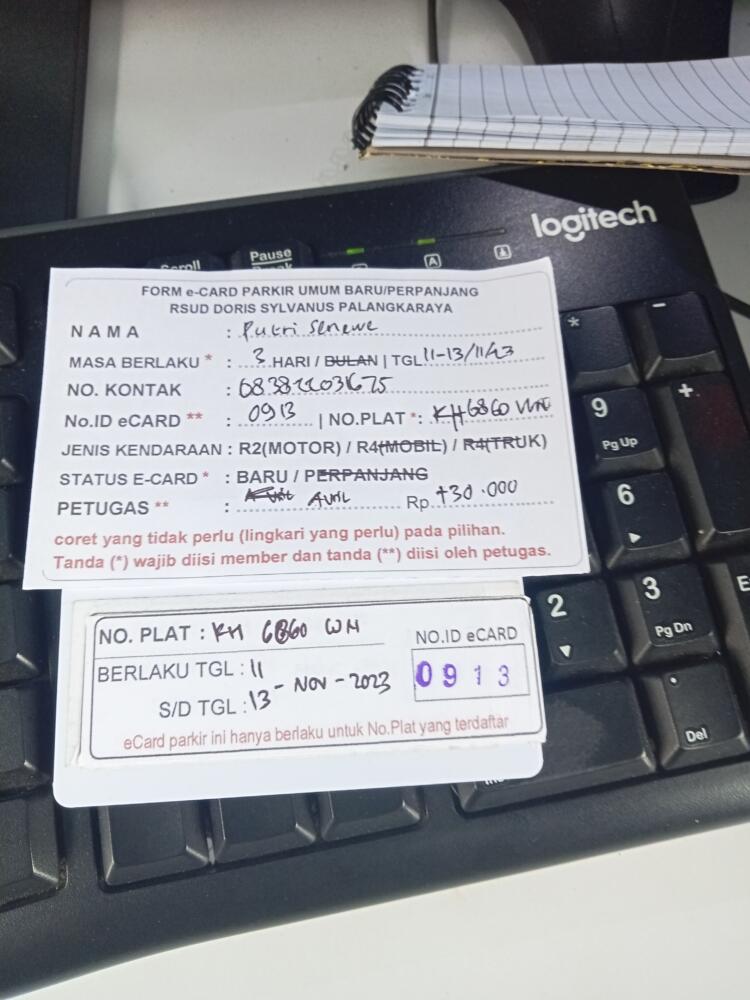 logitech
Pause
FORM e-CARD PARKIR UMUM BARU/PERPANJANG
RSUD DORIS SYLVANUS PALANGKARAYA
NAMA : Putri
MASA BERLAKU * : 3 HARI / BULAN | TGL 11-13/11/23
NO. KONTAK :
No.ID eCARD ** : 0913 | NO.PLAT *: KH 6860 WM
JENIS KENDARAAN : R2(MOTOR) / R4(MOBIL) / R4(TRUK)
STATUS E-CARD * : BARU / PERPANJANG
PETUGAS ** : Avril Rp. +30.000
coret yang tidak perlu (lingkari yang perlu) pada pilihan.
Tanda (*) wajib diisi member dan tanda (**) diisi oleh petugas.
NO. PLAT : KH 6860 WM
NO.ID eCARD
0913
BERLAKU TGL : 11
S/D TGL : 13 - NOV - 2023
eCard parkir ini hanya berlaku untuk No.Plat yang terdaftar
*
-
+
9
Pg Up
6
2
3
Pg Dn
.
Del
A